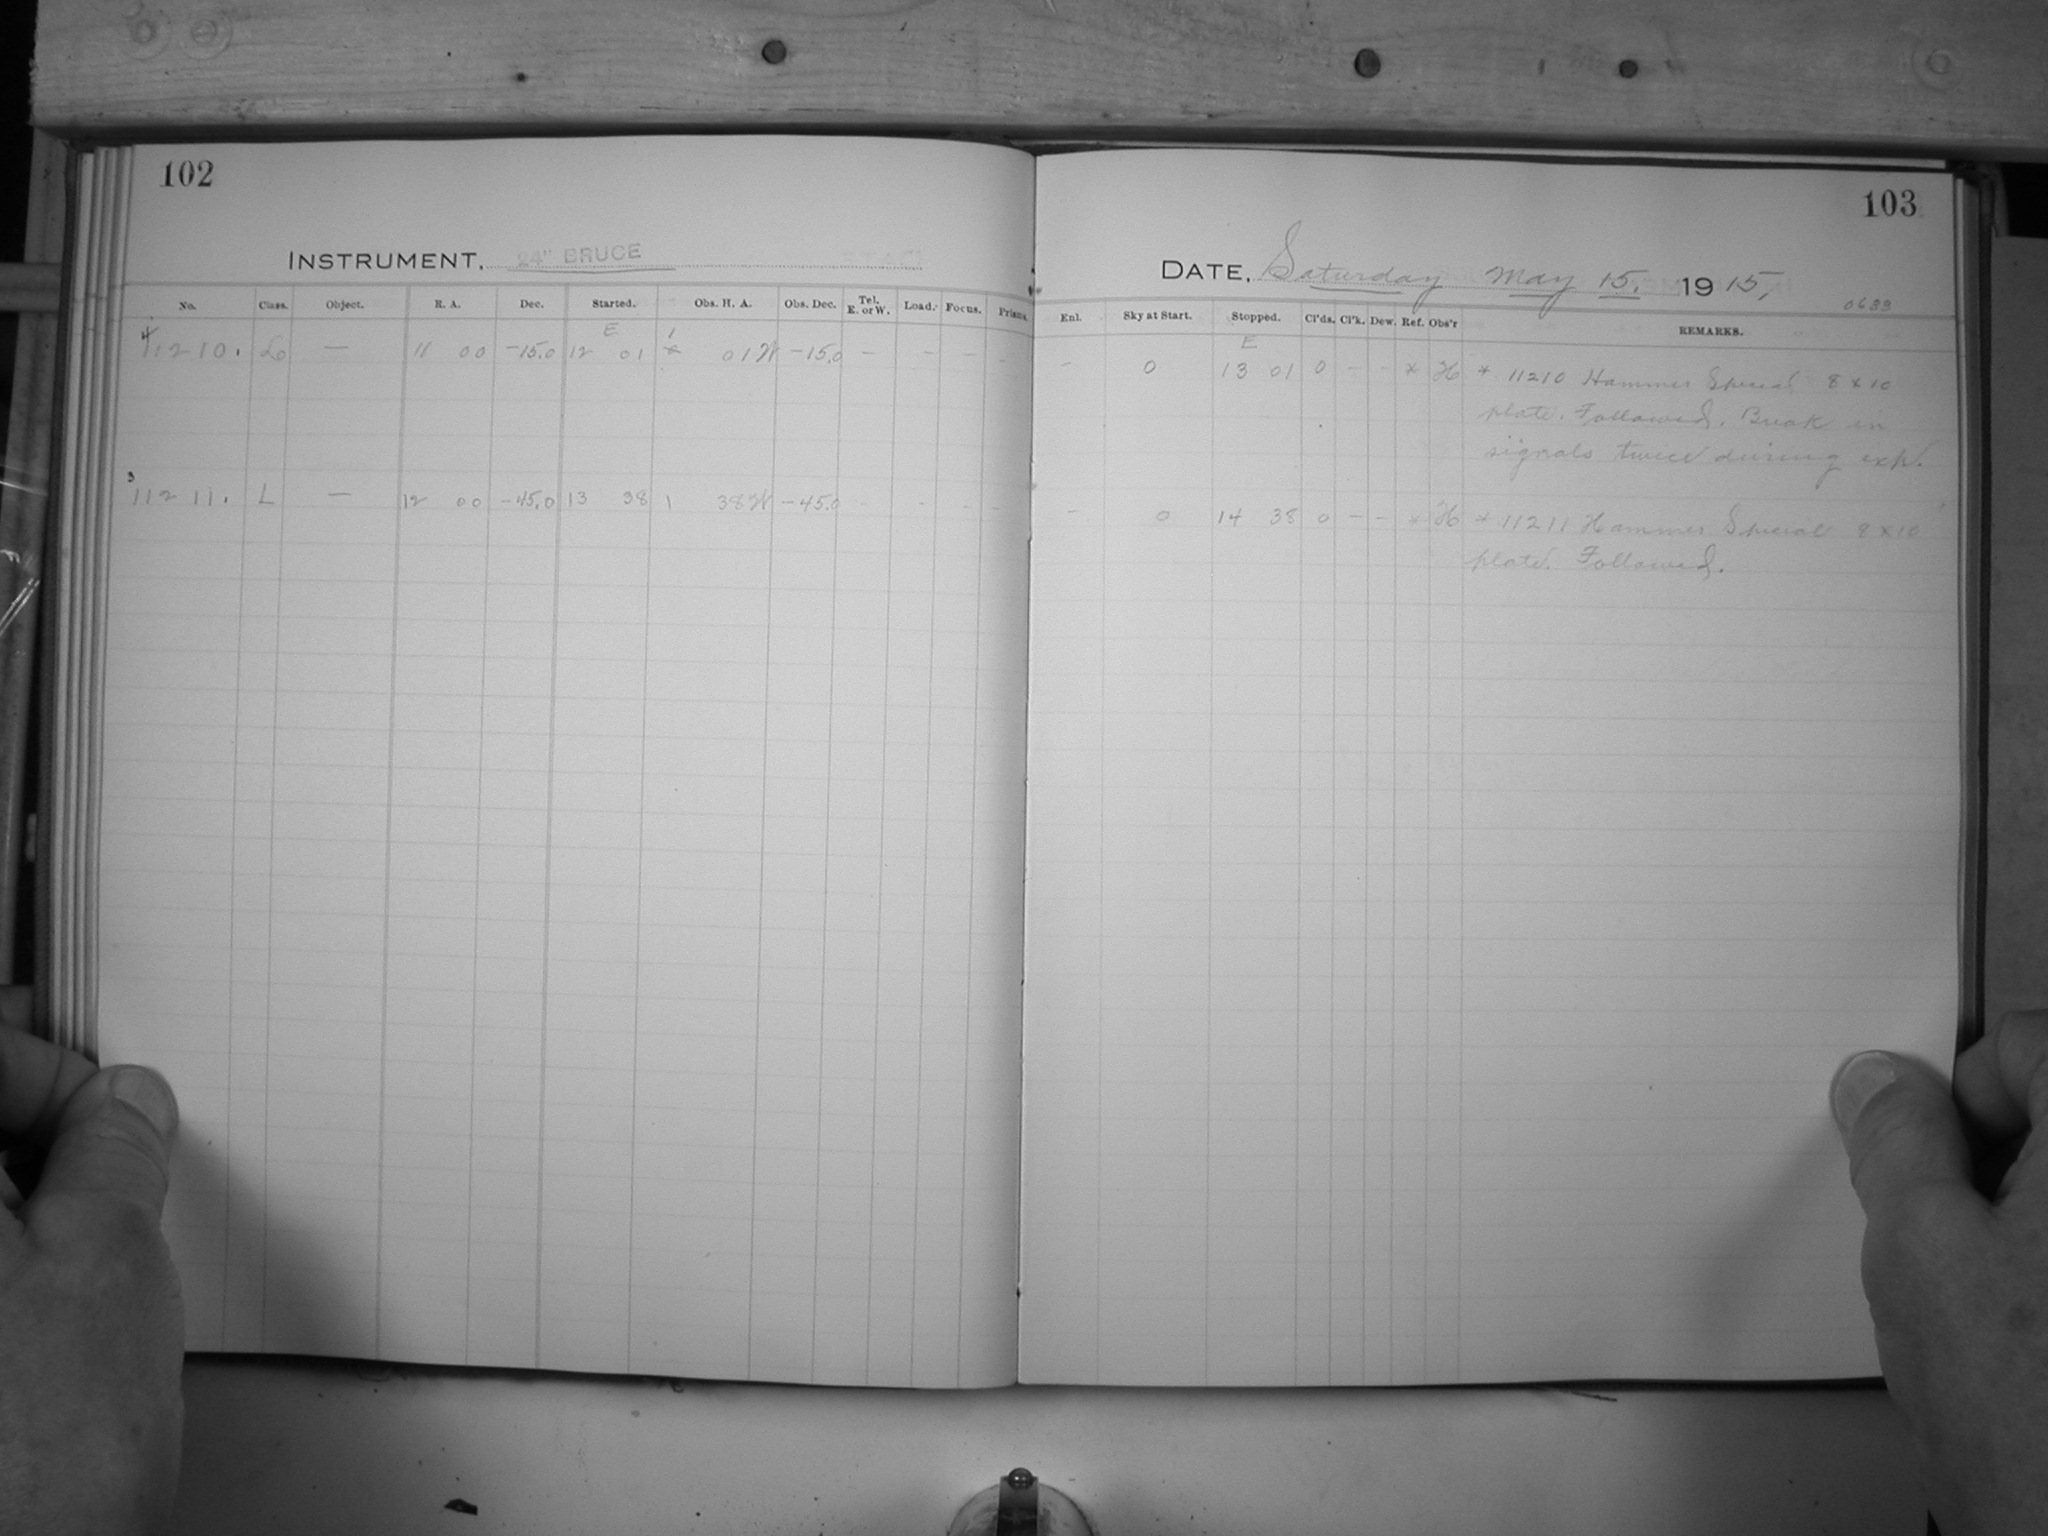 102
INSTRUMENT. 24" BRUCE
No. Class. Object. R. A. Dec. Started. Obs. H. A. Obs. Dec. Tel. E. or W. Load. Focus. Prisms.
E 1
11210. — 11 00 -15.0 12 01 01 W -15.0 — — — —
3
11211. L — 12 00 -45.0 13 38 1 38 W -45.0 - - - -
103
DATE. Saturday May 15, 1915,
0639
Enl. Sky at Start. Stopped. Cl'ds. Cl'k. Dew. Ref. Obs'r REMARKS.
E
— 0 13 01 0 — - * H * 11210 Hammer Special 8 x 10
plate. Followed. Break in
signals twice during exp.
— 0 14 38 0 — - * H * 11211 Hammer Special 8 x 10
plate. Followed.